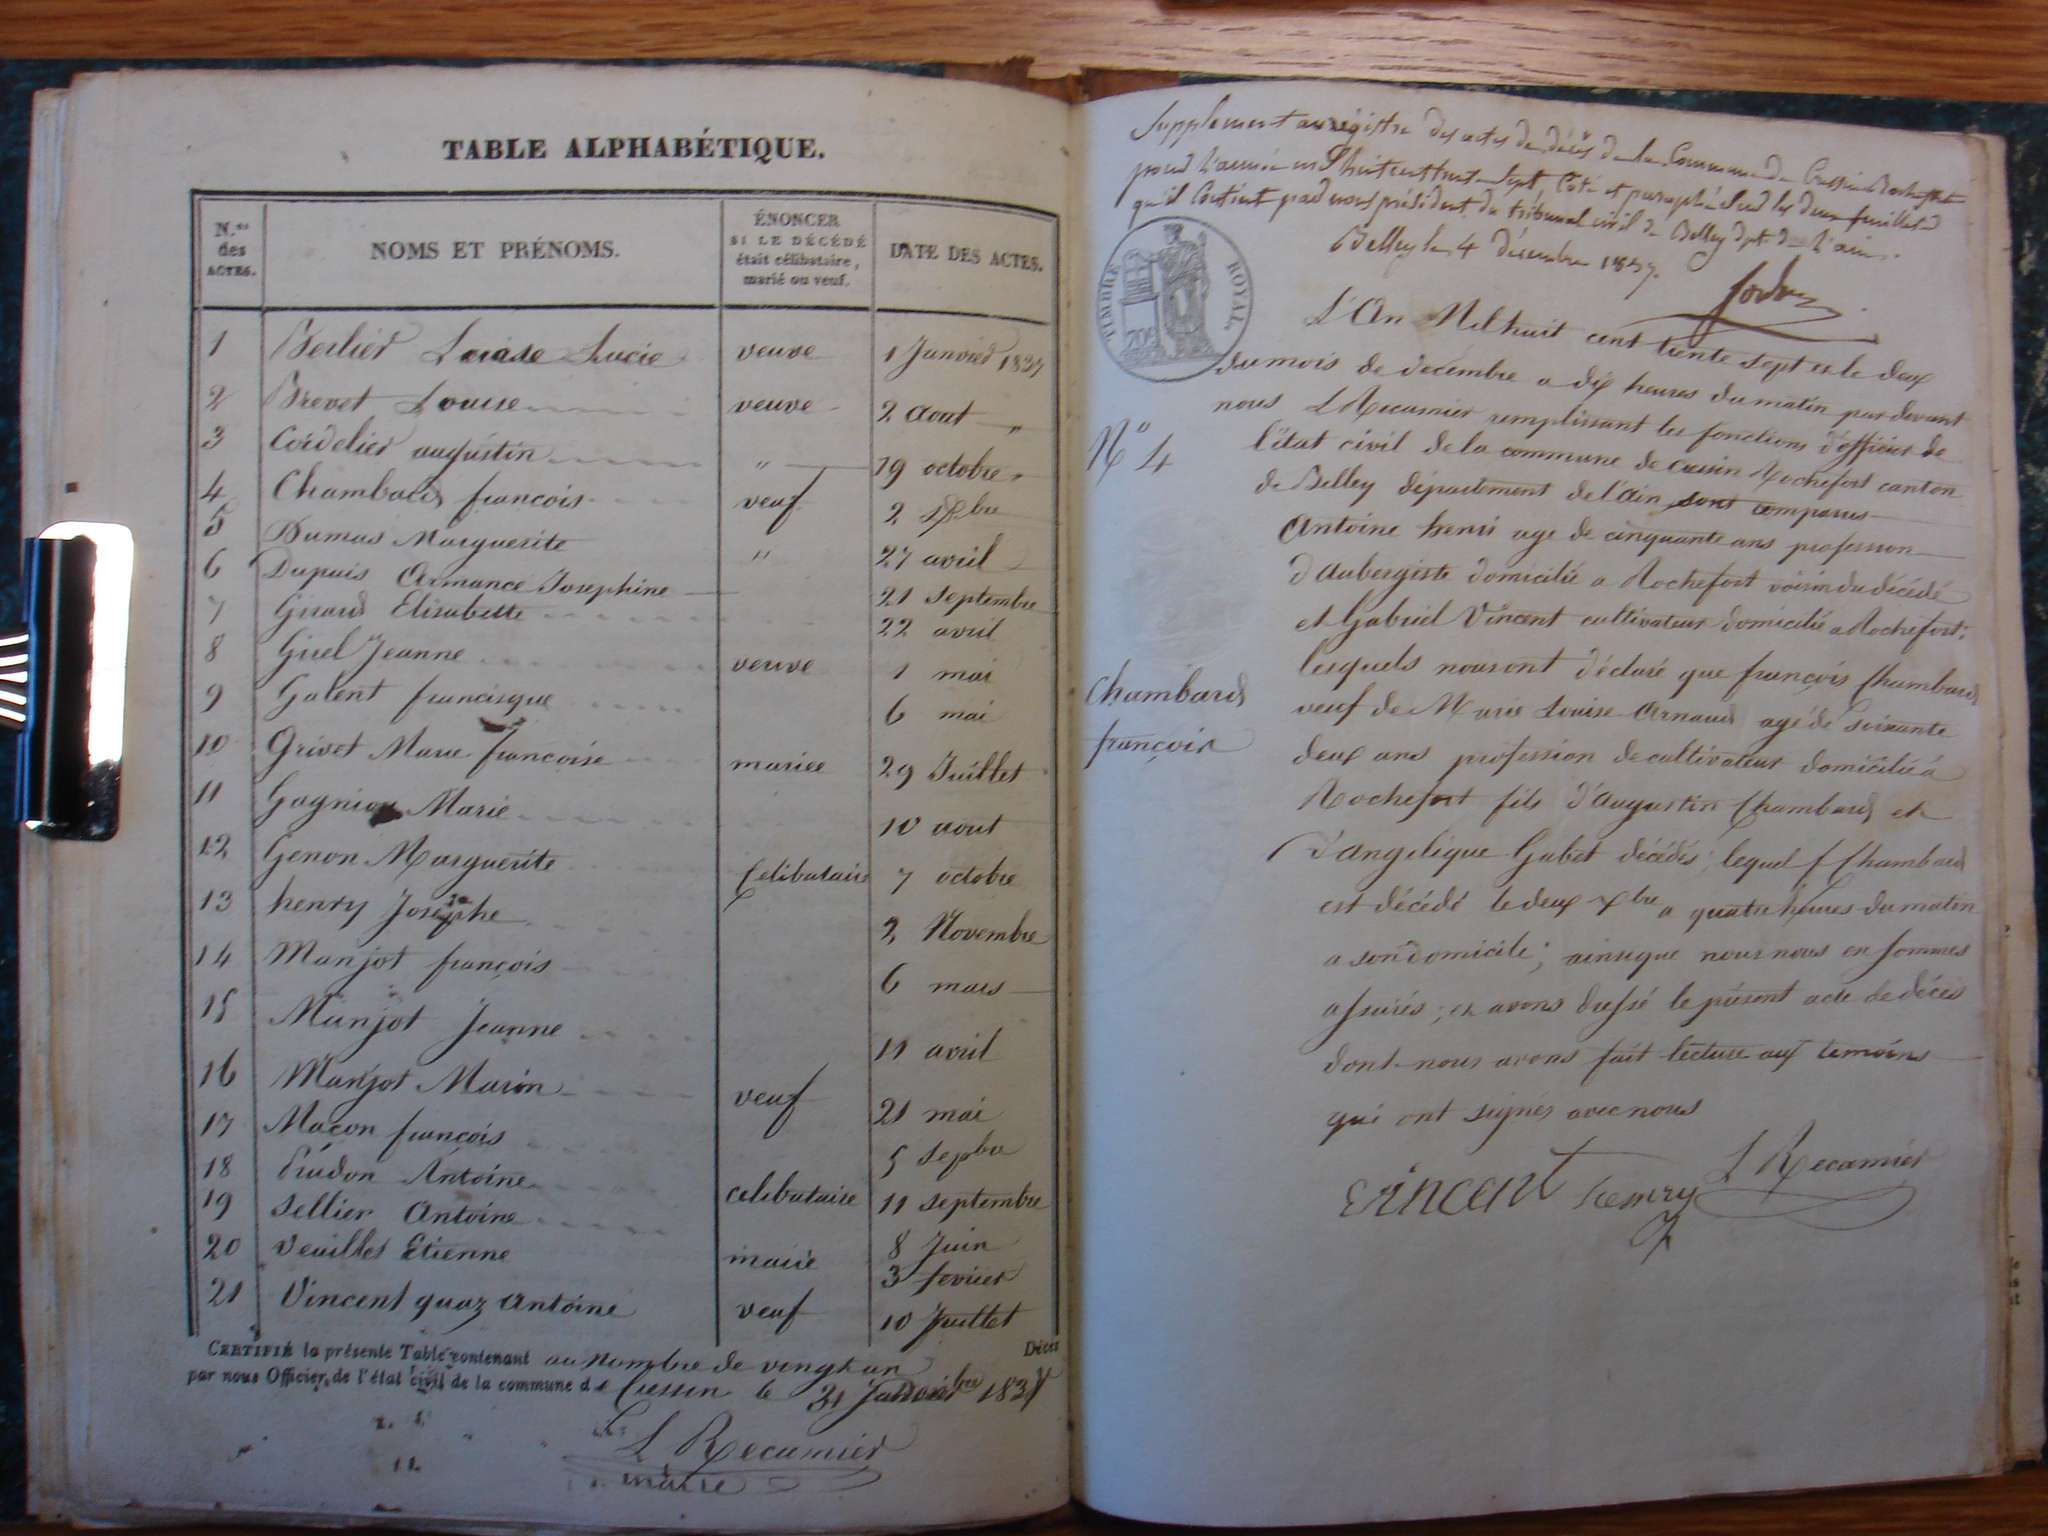 TABLE ALPHABÉTIQUE.
N.os des ACTES.
NOMS ET PRÉNOMS.
ÉNONCER SI LE DÉCÉDÉ était célibataire, marié ou veuf.
DATE DES ACTES.
1 Berlier Louise Lucie veuve 1 Janvier 1837
2 Brevet Louise veuve 2 Aout "
3 Cordelier augustin " 19 octobre "
4 Chambard françois veuf 2 bre
5 Dumas Marguerite " 27 avril
6 Dupuis Armance Josephine 21 septembre
7 Girard Elisabette 22 avril
8 Girel Jeanne veuve 1 mai
9 Galent francisque 6 mai
10 Grivet Marie françoise mariée 29 Juillet
11 Gagniou Marie 10 aout
12 Genon Marguerite Celibataire 7 octobre
13 henry Josephe 2 Novembre
14 Manjot françois 6 mars
15 Manjot Jeanne 11 avril
16 Manjot Marin veuf 21 mai
17 Maçon françois 5 sepbre
18 Antoine celibataire 11 septembre
19 Sellier Antoine 8 Juin
20 Veuillet Etienne marié 3 fevrier
21 Vincent quaz Antoine veuf 10 Juillet
CERTIFIÉ la présente Table contenant au nombre de vingt un Décès
par nous Officier de l'état civil de la commune de Cressin le 31 183
L Recamier
maire
Supplement au registre des actes de décès de la Commune de Cressin Rochefort
pour l'année mil huit cent trente Sept, Coté et paraphé sur les deux feuillets
qu'il Contient par nous président du tribunal civil de Belley dpt. de l'ain.
Belley le 4 décembre 1837.
TIMBRE ROYAL
70c
L'An Mil huit cent trente sept et le deux
du mois de décembre a dix heures du matin par devant
nous L Recamier remplissant les fonctions d'officier de
N° 4
l'état civil de la commune de Cressin Rochefort canton
de Belley département de l'Ain sont comparus
Antoine henri age de cinquante ans profession
d'Aubergiste domicilié a Rochefort voisin du décédé
et Gabriel Vincent cultivateur domicilié a Rochefort;
lesquels nous ont déclaré que françois Chambard
Chambard
françois
veuf de Marie Louise Arnaud agé de soixante
deux ans profession de cultivateur domicilié à
Rochefort fils d'Augustin Chambard et
d'angelique Gubet décédés; lequel f Chambard
est décédé le deux Xbre a quatre heures du matin
a son domicile; ainsi que nous nous en sommes
assurés; et avons dressé le présent acte de décès
dont nous avons fait lecture aux temoins
qui ont signés avec nous
vincent henry L Recamier